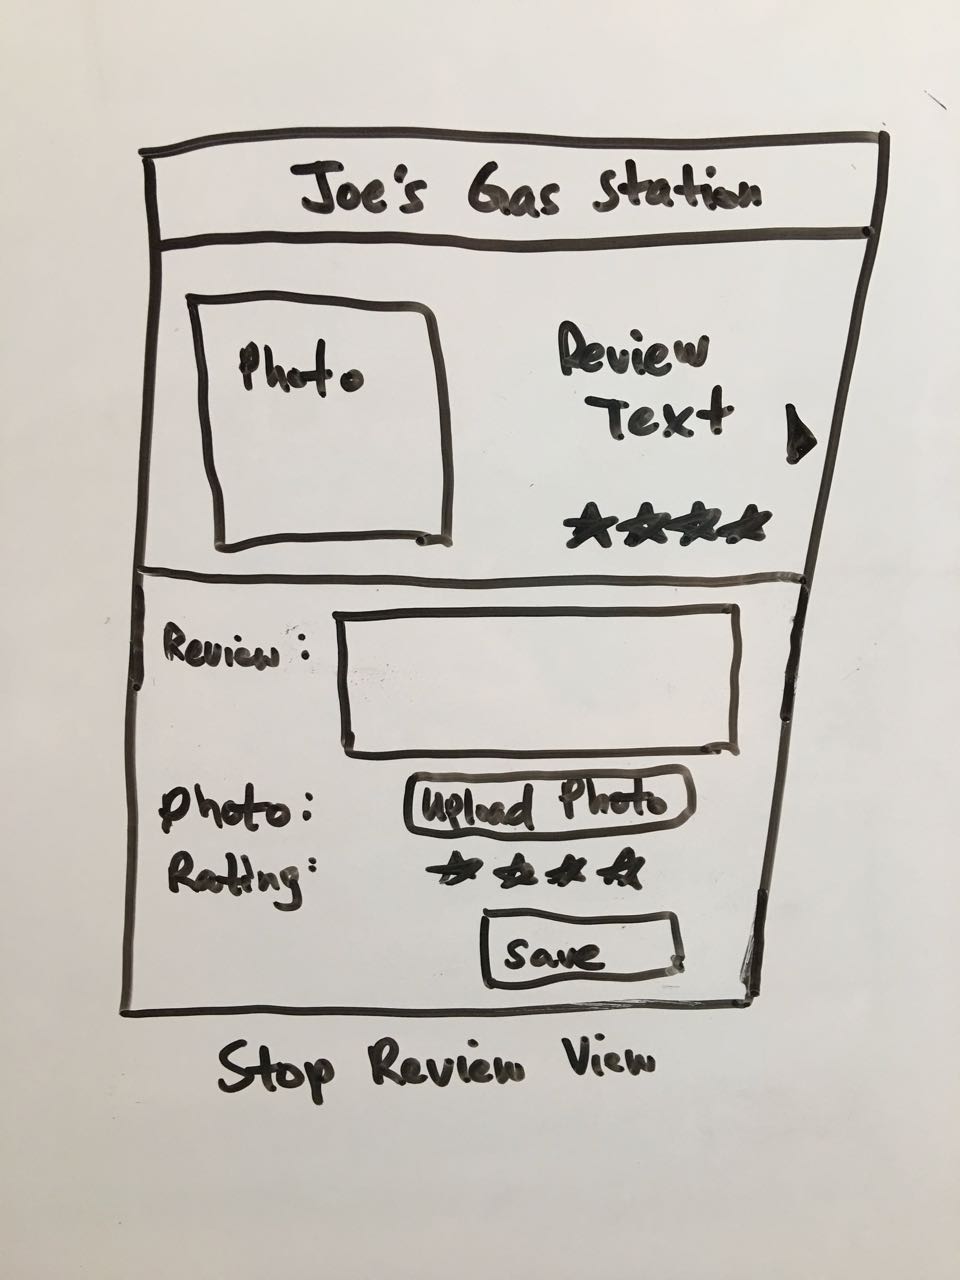 Joe's Gas Station
Photo
Review
Text
Review:
Photo:
Upload Photo
Rating:
Save
Stop Review View